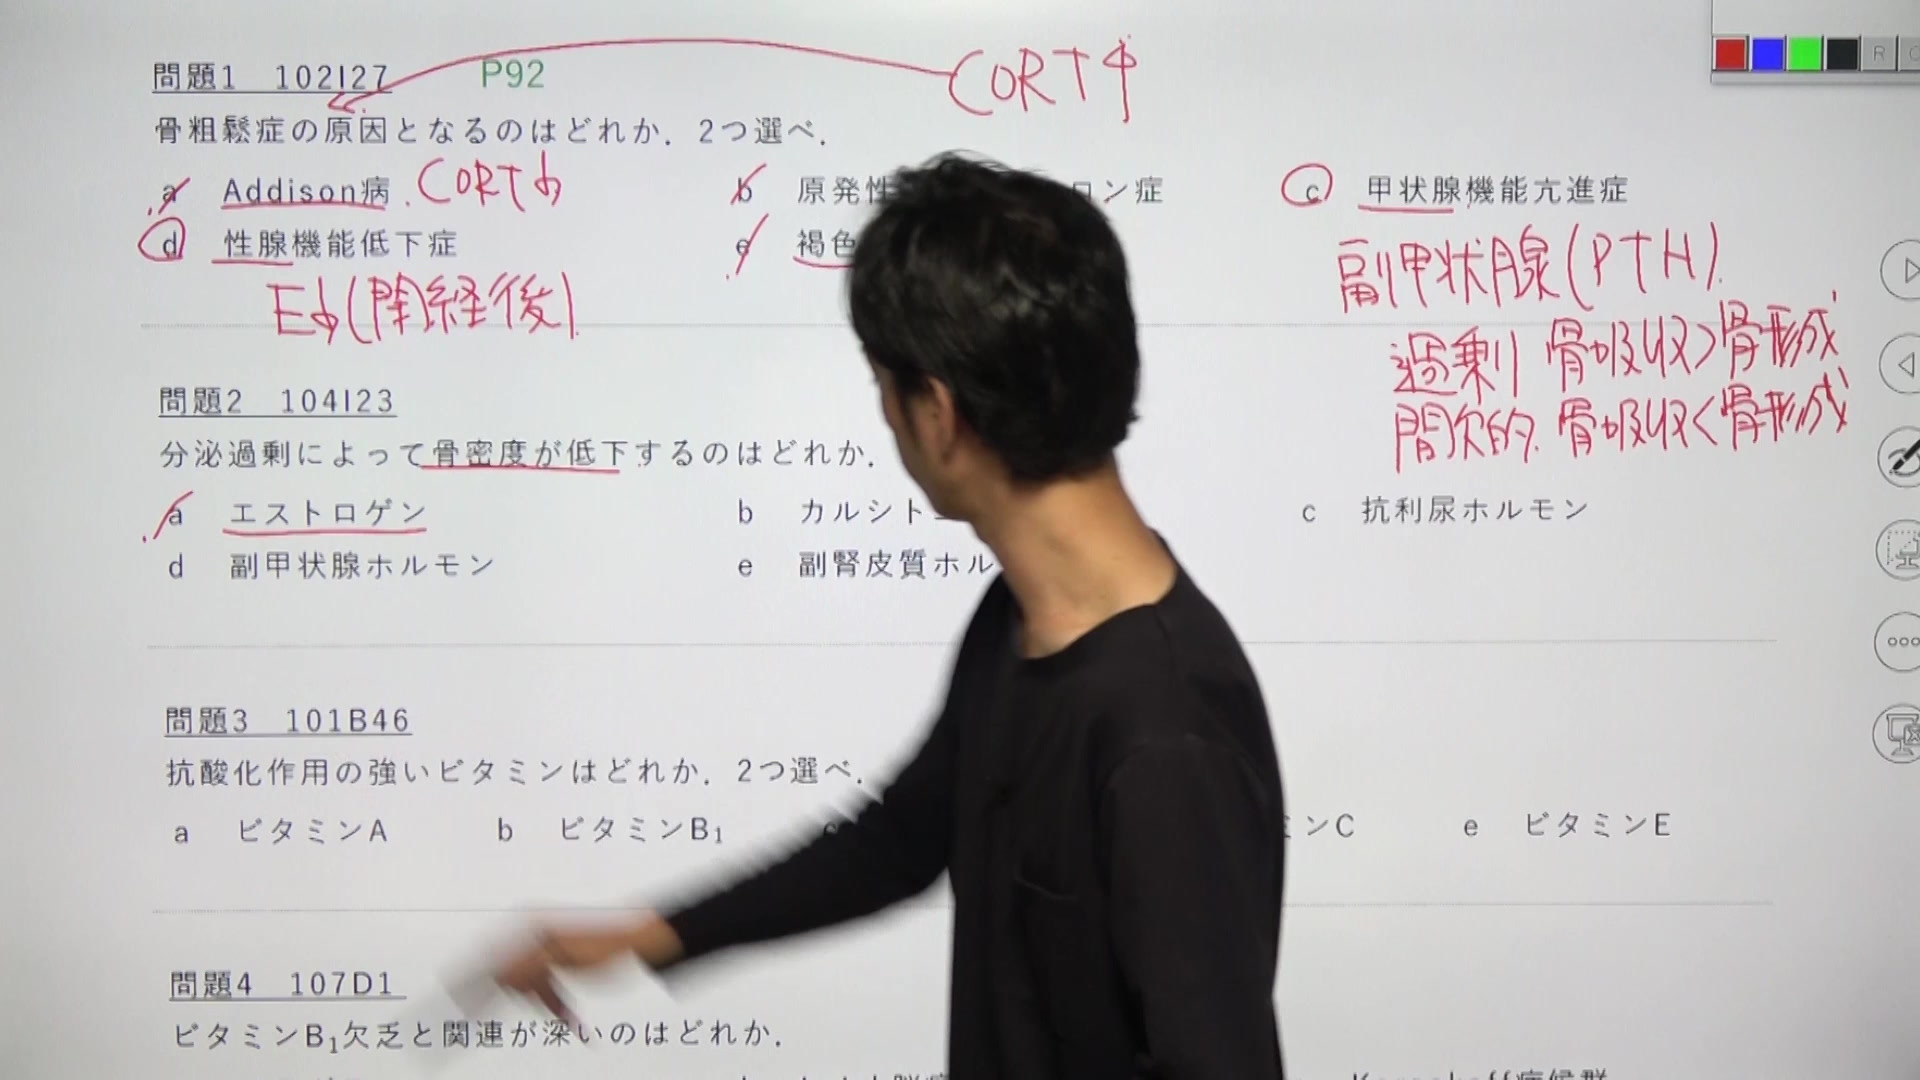 問題1 102I27 P92 CORT↑
骨粗鬆症の原因となるのはどれか．2つ選べ．
a Addison病 CORT↓ b 原発性 ン症 c 甲状腺機能亢進症
d 性腺機能低下症 e 褐色
E↓(閉経後)
副甲状腺(PTH)
過剰 骨吸収>骨形成
間欠的 骨吸収<骨形成
問題2 104I23
分泌過剰によって骨密度が低下するのはどれか．
a エストロゲン b カルシト c 抗利尿ホルモン
d 副甲状腺ホルモン e 副腎皮質ホル
問題3 101B46
抗酸化作用の強いビタミンはどれか．2つ選べ．
a ビタミンA b ビタミンB₁ c ンC e ビタミンE
問題4 107D1
ビタミンB₁欠乏と関連が深いのはどれか．